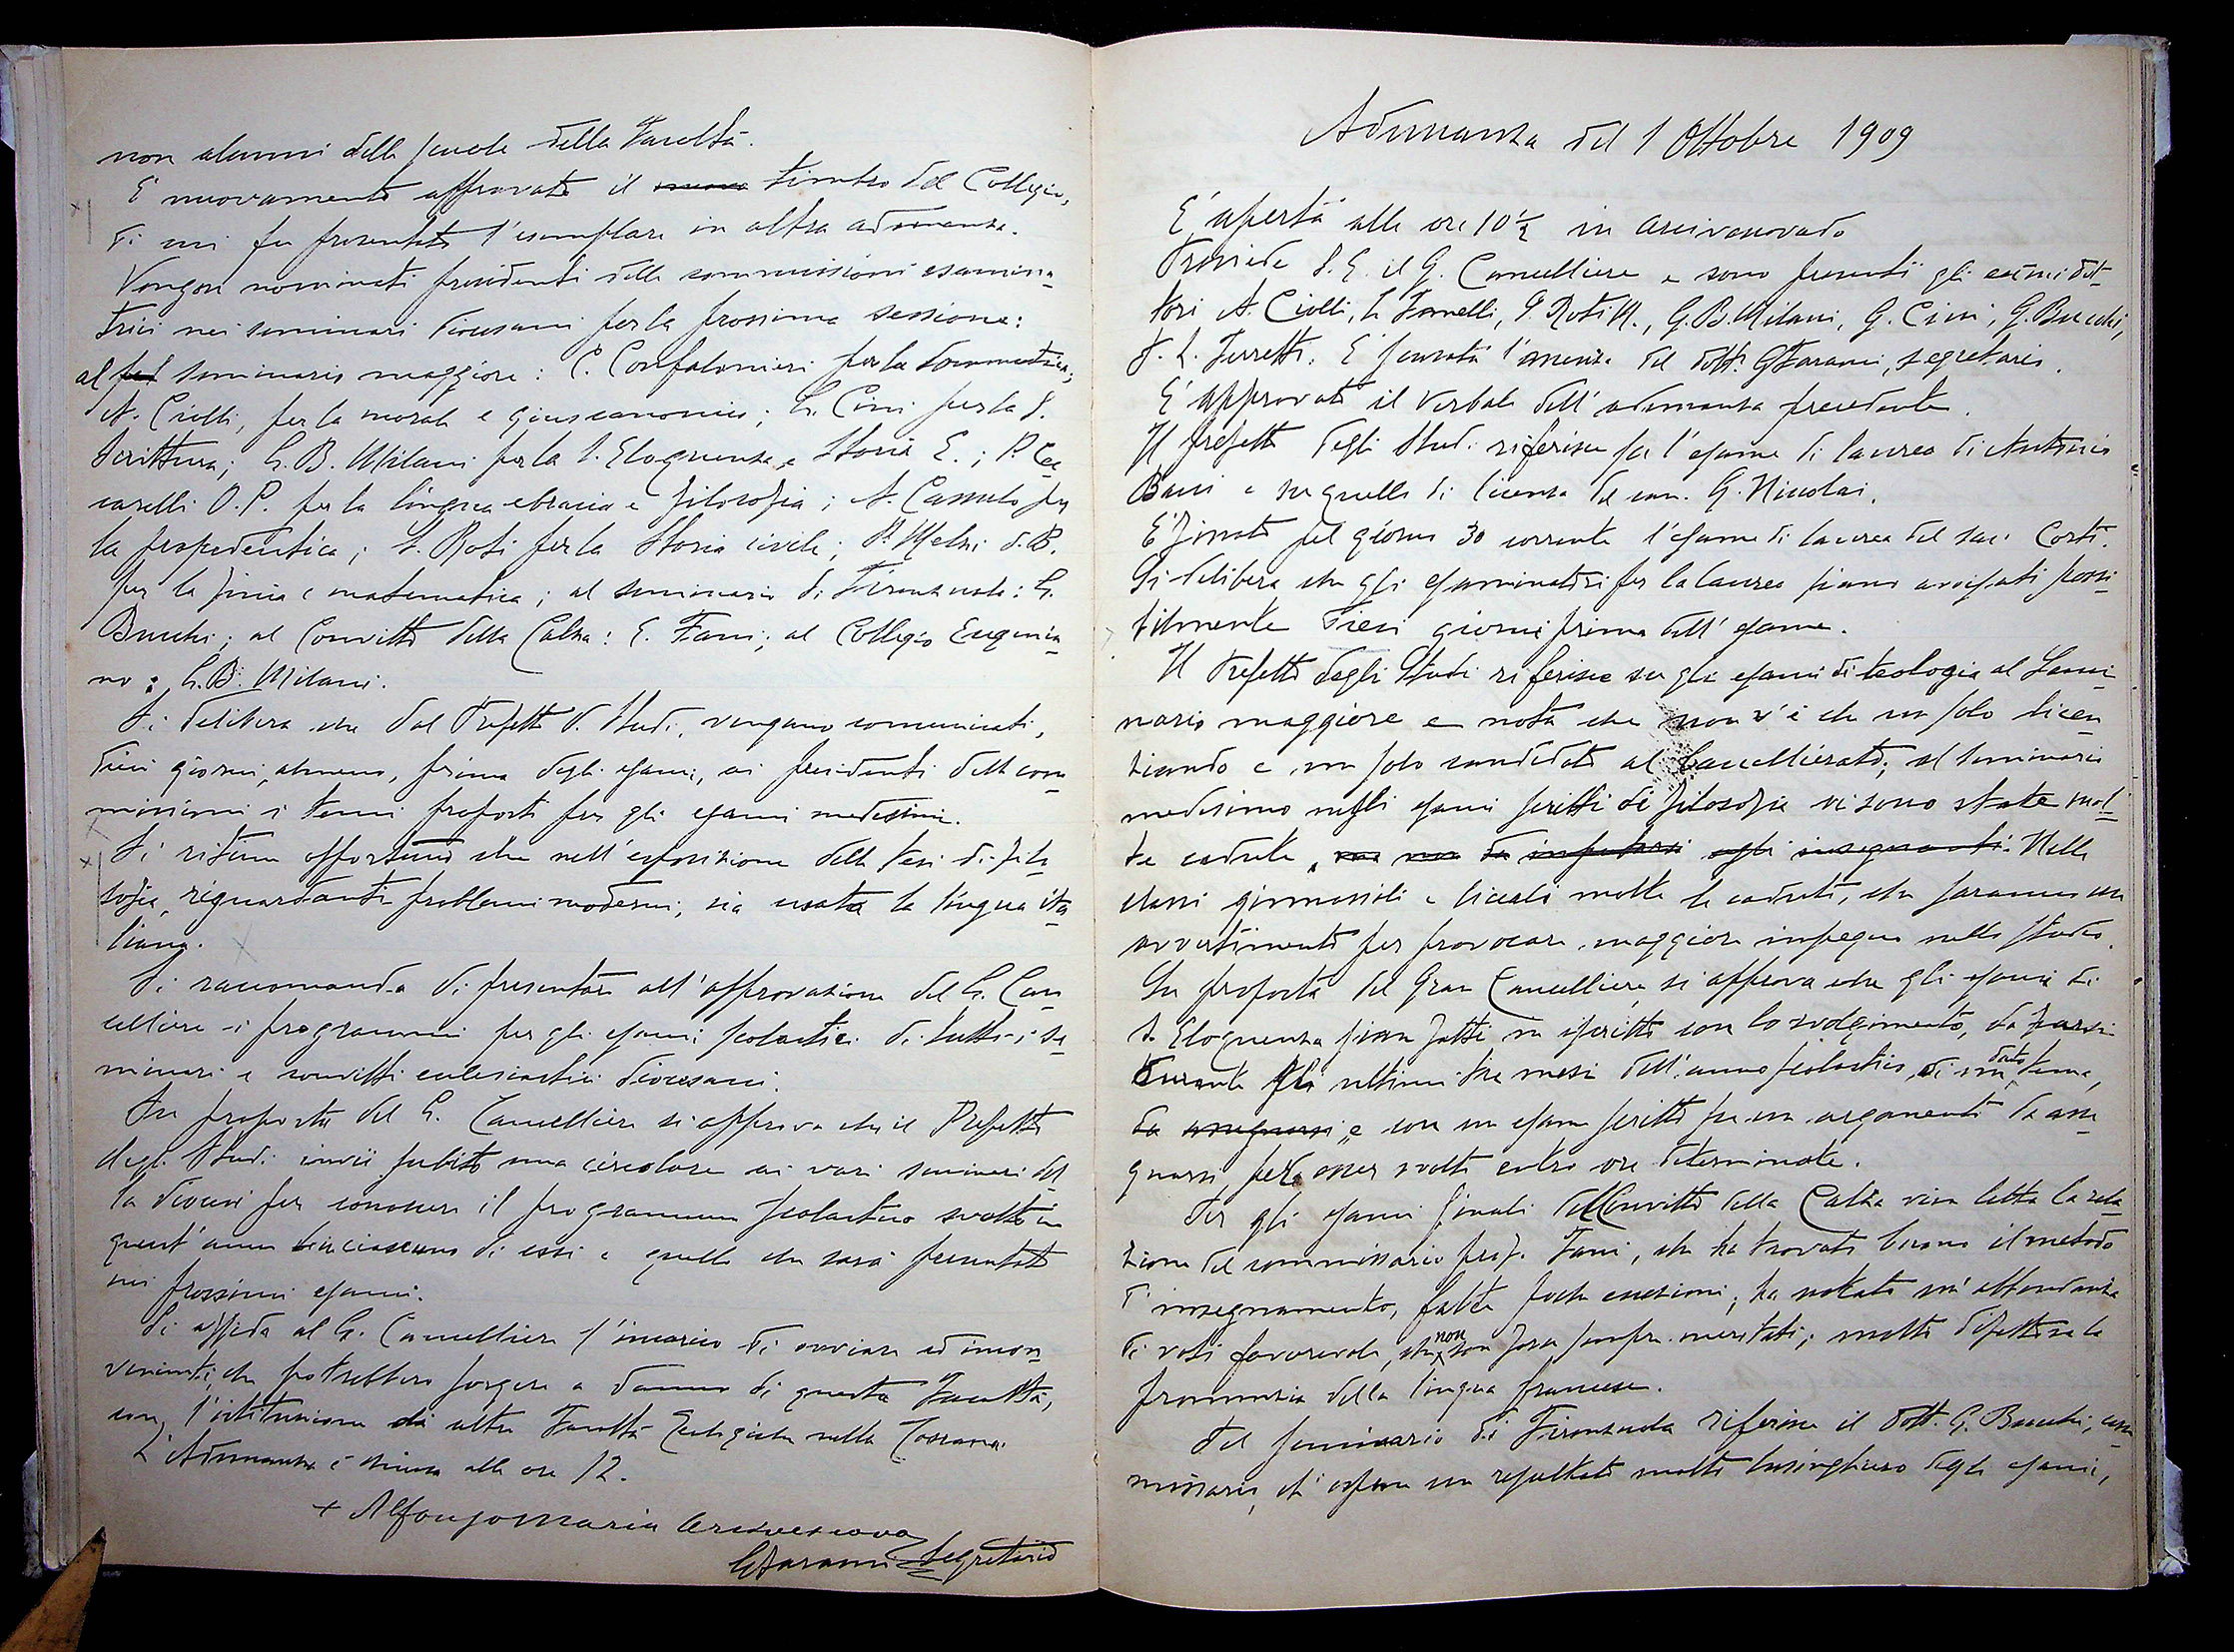 non alunni delle scuole della Facoltà.
È nuovamente approvato il nuovo timbro del Collegio,
di cui fu presentato l'esemplare in altra adunanza.
Vengon nominati presidenti delle commissioni esamina-
trici nei seminari diocesani per la prossima sessione:
al pel seminario maggiore: C. Confalonieri per la dommatica;
A. Ciolli, per la morale e gius canonico; G. Cini per la S.
Scrittura; G. B. Milani per la S. Eloquenza e Storia E.; P. Cec
carelli O.P. per la lingua ebraica e filosofia; A. Cassulo per
la propedeutica; S. Roti per la Storia civile; P. Melzi d. B.
per la fisica e matematica; al seminario di Firenzuola: G.
Bucchi; al Convitto della Calza: E. Fani; al Collegio Eugenia-
no: G. B. Milani.
Si delibera che dal Prefetto d. Studi, vengano comunicati,
dieci giorni, almeno, prima degli esami, ai presidenti delle com-
missioni i temi proposti per gli esami medesimi.
Si ritiene opportuno che nell'esposizione delle tesi di filo
sofia, riguardanti problemi moderni, sia usata la lingua ita-
liana.
Si raccomanda di presentare all'approvazione del G. Can
celliere i programmi per gli esami scolastici di tutti i se-
minari e convitti ecclesiastici diocesani.
Su proposta del G. Cancelliere si approva che il Prefetto
degli Studi invii subito una circolare ai vari seminari del-
la diocesi per conoscere il programma scolastico svolto in
quest'anno in ciascuno di essi e quello che sarà presentato
nei prossimi esami.
Si affida al G. Cancelliere l'incarico di ovviare ad incon-
venienti, che potrebbero sorgere a danno di questa Facoltà,
con l'istituzione di altre Facoltà Teologiche nella Toscana.
L'Adunanza è chiusa alle ore 12.
+ Alfonso Maria Arcivescovo
G Faraoni Segretario
Adunanza del 1 Ottobre 1909
È aperta alle ore 10 1/2 in arcivescovado
Presiede S. E. il G. Cancelliere e sono presenti gli esimi dot-
tori A. Ciolli, L. Tonelli, S. Roti M., G. B. Milani, G. Cini, G. Bucchi,
P. L. Ferretti. È scusata l'assenza del dott. G Faraoni, segretario.
È approvato il verbale dell'adunanza precedente.
Il prefetto degli Studi riferisce su l'esame di laurea di Antonio
Bacci e su quello di licenza del can. G. Nicolai.
È fissato pel giorno 30 corrente l'esame di laurea del sac. Corti.
Si delibera che gli esaminatori per la laurea siano avvisati possi-
bilmente dieci giorni prima dell'esame.
Il Prefetto degli Studi riferisce su gli esami di teologia al Semi-
nario maggiore e nota che non v'è che un solo licen
ziando e un solo candidato al baccellierato; al seminario
medesimo negli esami scritti di filosofia vi sono state mol-
te cadute, ma non da imputarsi agli insegnanti. Nelle
classi ginnasiali e liceali molte le cadute, che saranno un
avvertimento per provocare maggiore impegno nello studio.
Su proposta del Gran Cancelliere si approva che gli esami di
S. Eloquenza sian fatti in iscritto con lo svolgimento, da farsi
durante gli ultimi tre mesi dell'anno scolastico, di un dato tema,
da assegnarsi, e con un esame scritto su un argomento da asse-
gnarsi, per esser svolto entro ore determinate.
Per gli esami finali del Convitto della Calza vien letta la rela-
zione del commissario prof. Fani, che ha trovato buono il metodo
d'insegnamento, fatte poche eccezioni; ha notato un'abbondanza
di voti favorevole, che non son forse sempre meritati; molto difettosa la
pronunzia della lingua francese.
Del seminario di Firenzuola riferisce il dott. G. Bucchi, com-
missario, ch'espone un resultato molto lusinghiero degli esami,